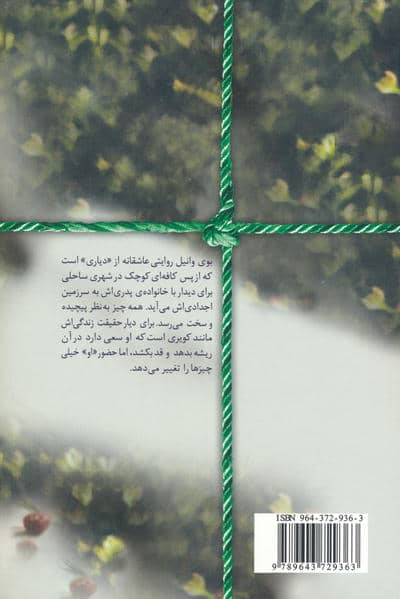 بوی وانیل روایتی عاشقانه از «دیاری» است
که از پس کافه‌ای کوچک در شهری ساحلی
برای دیدار با خانواده‌ی پدری‌اش به سرزمین
اجدادی‌اش می‌آید. همه چیز به‌نظر پیچیده
و سخت می‌رسد. برای دیار حقیقت زندگی‌اش
مانند کویری است که او سعی دارد در آن
ریشه بدهد و قد بکشد، اما حضور «او» خیلی
چیزها را تغییر می‌دهد.
ISBN 964-372-936-3
9 789643 729363